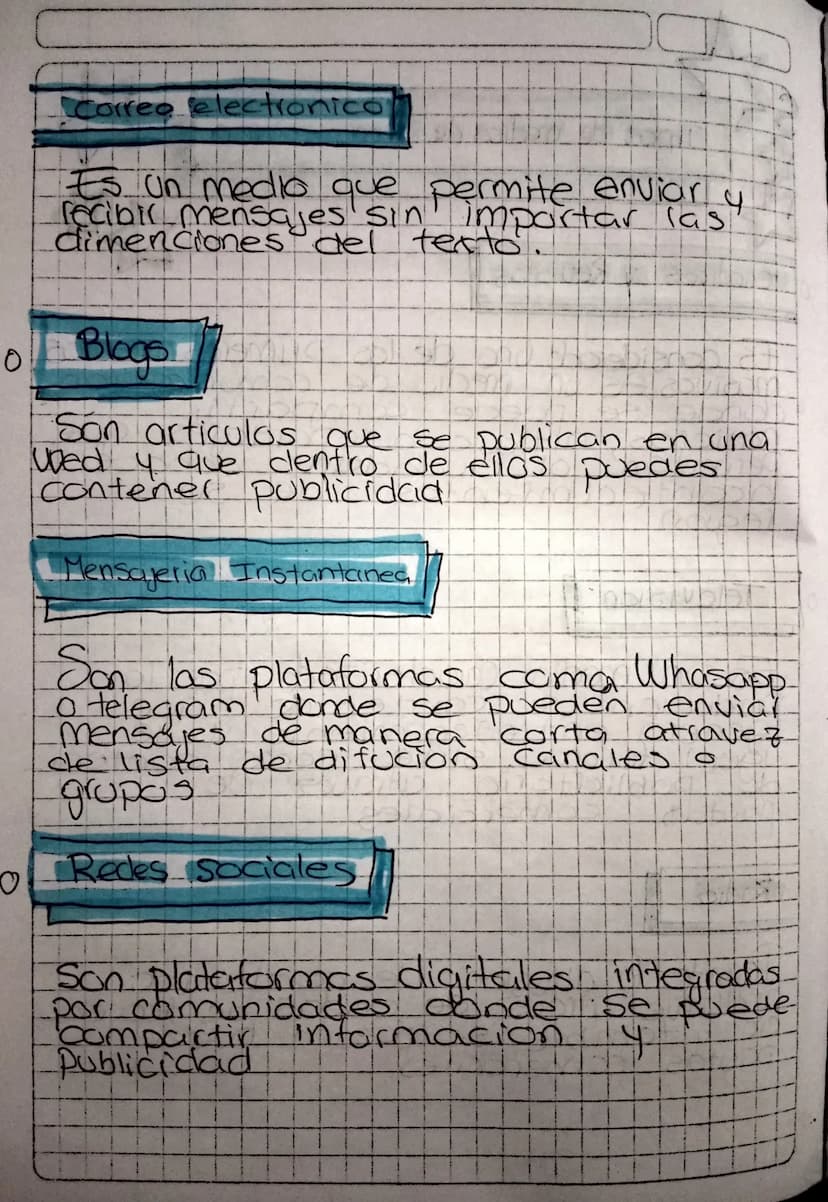 Correo electronico
Es un medio que permite enviar y
recibir mensajes sin importar las
dimenciones del texto.
Blogs
Són articulos que se publican en una
wed y que dentro de ellos puedes
contener publicidad
Mensajeria Instantanea
Son las plataformas como Whasapp
o telegram donde se pueden enviar
mensajes de manera corta atravez
de lista de difución canales o
grupos
Redes sociales
Son plataformas digitales integradas
por comunidades donde se puede
compartir informacion y
publicidad